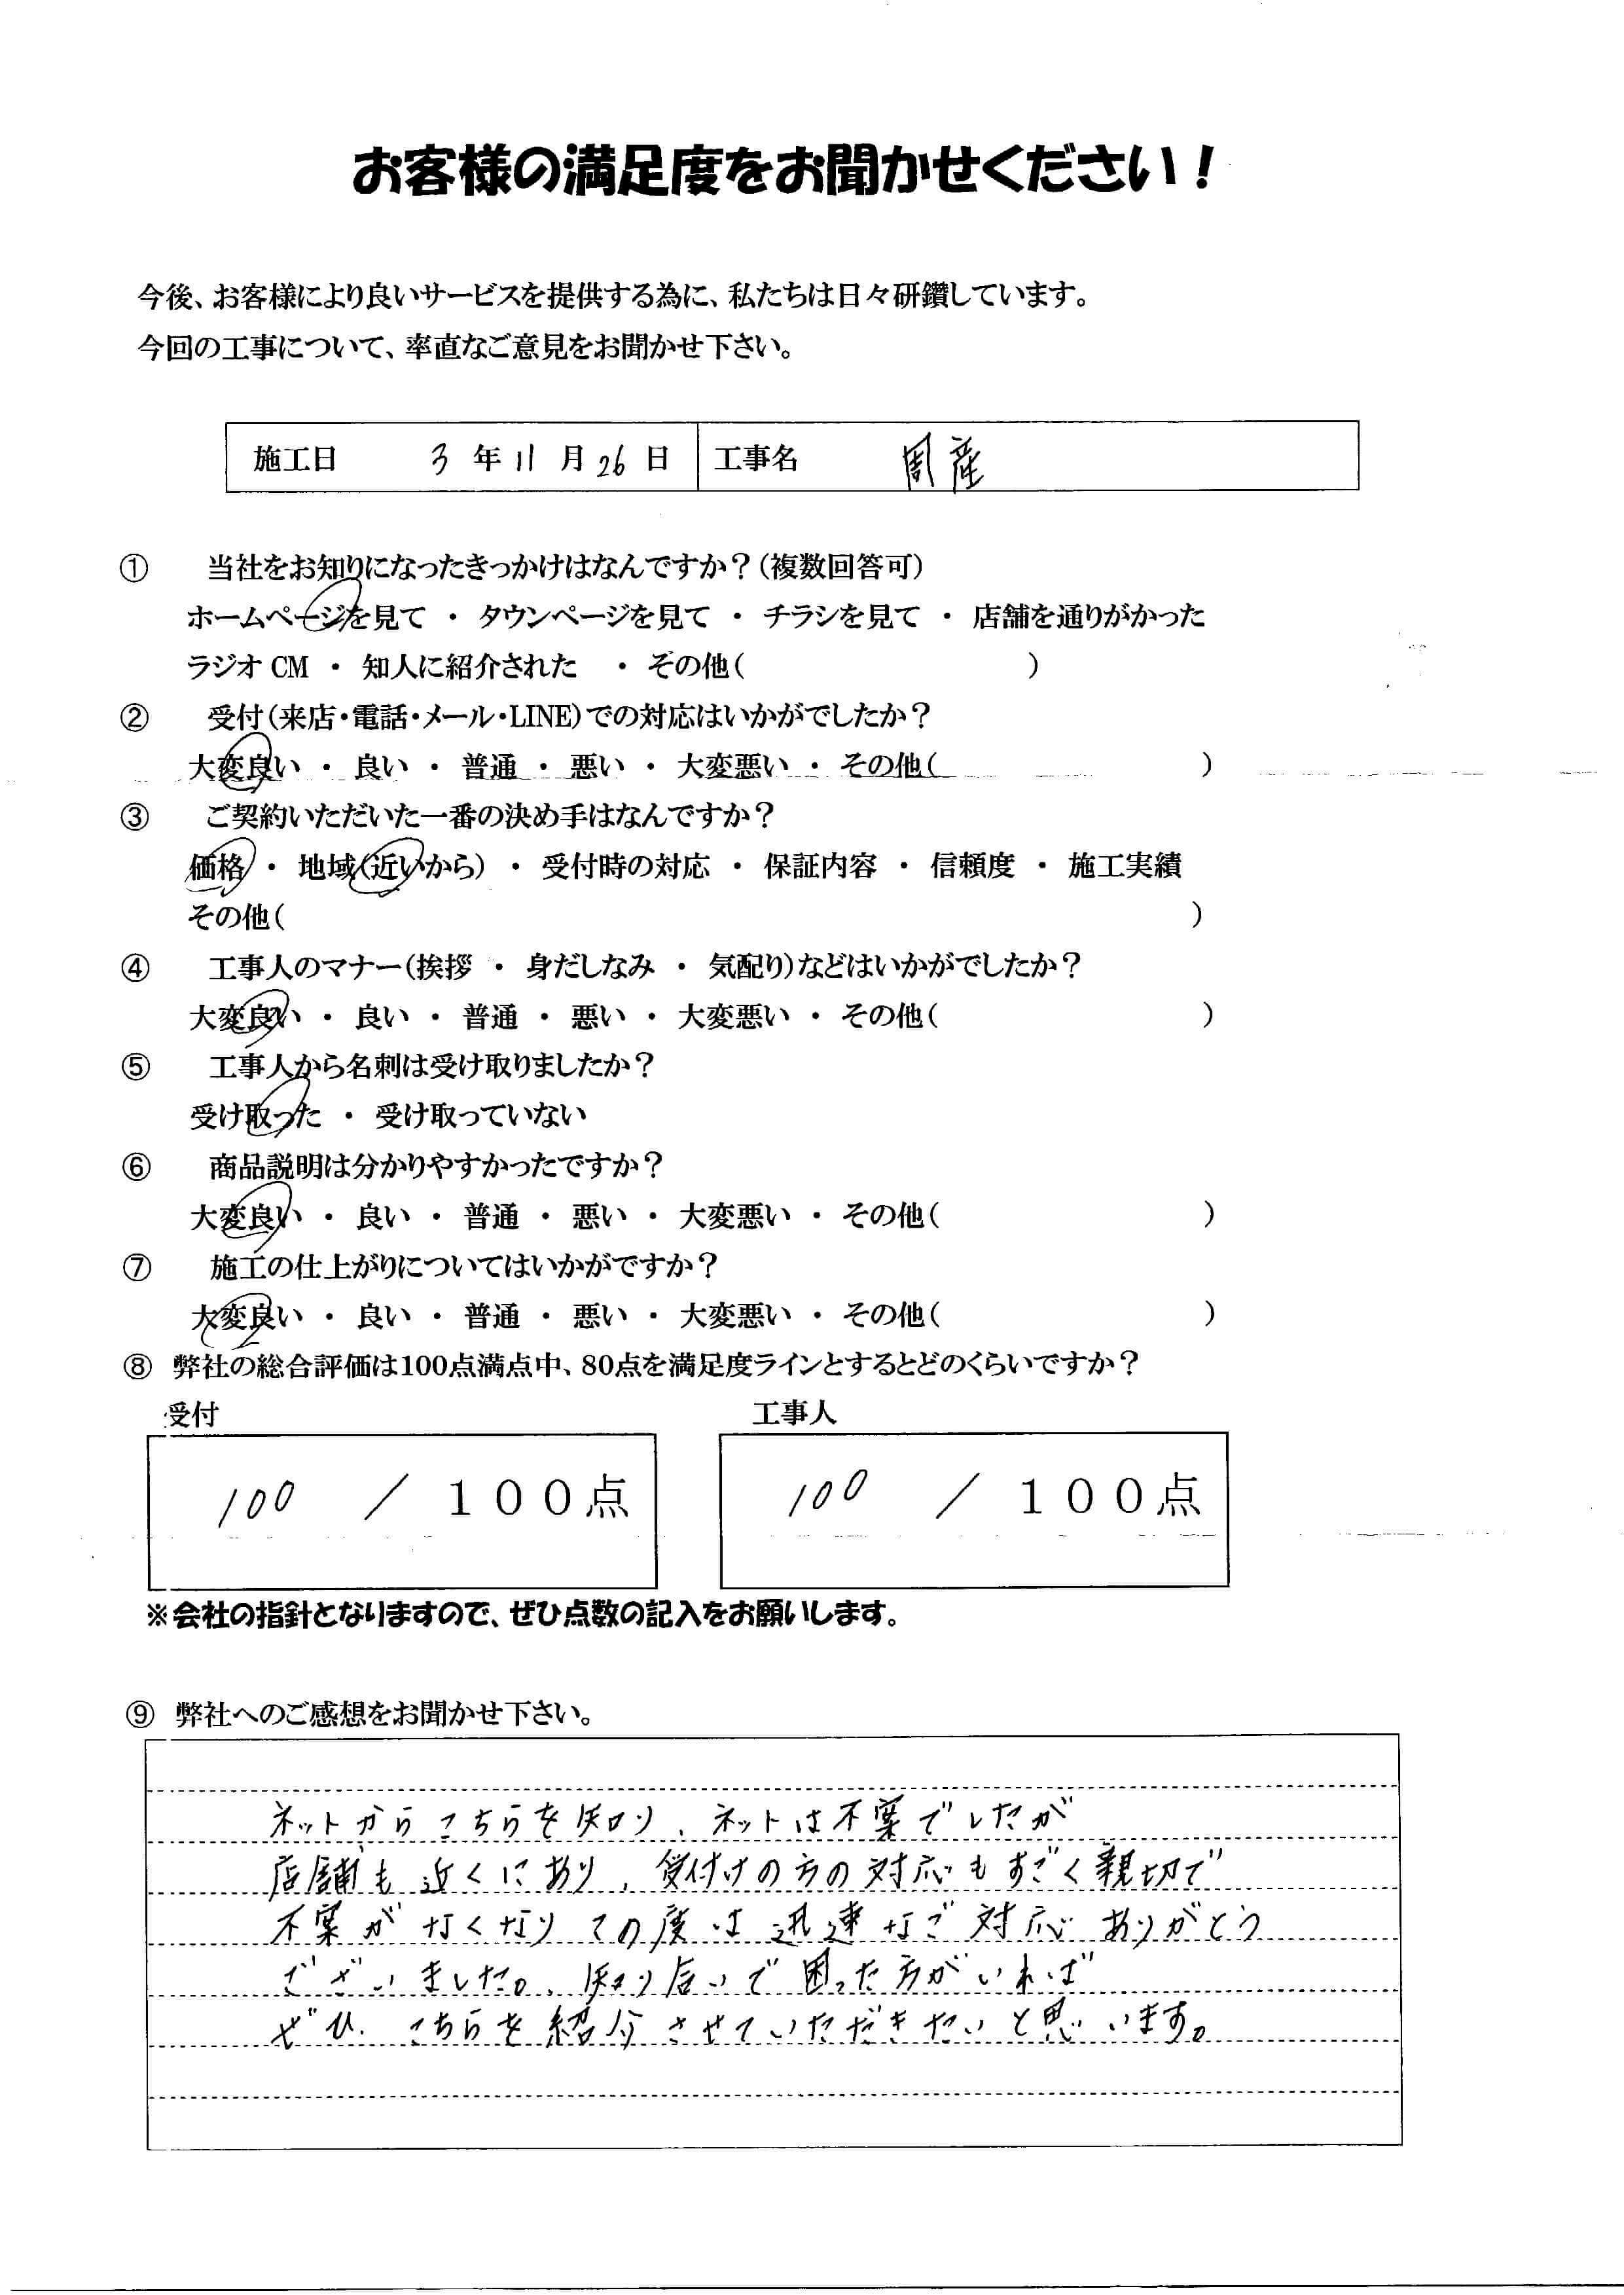 お客様の満足度をお聞かせください！
今後、お客様により良いサービスを提供する為に、私たちは日々研鑽しています。
今回の工事について、率直なご意見をお聞かせ下さい。
施工日 3 年 11 月 26 日 工事名
① 当社をお知りになったきっかけはなんですか？（複数回答可）
ホームページを見て ・ タウンページを見て ・ チラシを見て ・ 店舗を通りがかった
ラジオ CM ・ 知人に紹介された ・ その他（ ）
② 受付（来店・電話・メール・LINE）での対応はいかがでしたか？
大変良い ・ 良い ・ 普通 ・ 悪い ・ 大変悪い ・ その他（ ）
③ ご契約いただいた一番の決め手はなんですか？
価格 ・ 地域（近いから） ・ 受付時の対応 ・ 保証内容 ・ 信頼度 ・ 施工実績
その他（ ）
④ 工事人のマナー（挨拶 ・ 身だしなみ ・ 気配り）などはいかがでしたか？
大変良い ・ 良い ・ 普通 ・ 悪い ・ 大変悪い ・ その他（ ）
⑤ 工事人から名刺は受け取りましたか？
受け取った ・ 受け取っていない
⑥ 商品説明は分かりやすかったですか？
大変良い ・ 良い ・ 普通 ・ 悪い ・ 大変悪い ・ その他（ ）
⑦ 施工の仕上がりについてはいかがですか？
大変良い ・ 良い ・ 普通 ・ 悪い ・ 大変悪い ・ その他（ ）
⑧ 弊社の総合評価は100点満点中、80点を満足度ラインとするとどのくらいですか？
受付 工事人
100 ／ １００点 100 ／ １００点
※会社の指針となりますので、ぜひ点数の記入をお願いします。
⑨ 弊社へのご感想をお聞かせ下さい。
ネットからこちらを知り、ネットは不案でしたが
店舗も近くにあり、受付けの方の対応もすごく親切で
不案がなくなりこの度は迅速なご対応ありがとう
ございました。知り合いで困った方がいれば
ぜひ、こちらを紹介させていただきたいと思います。